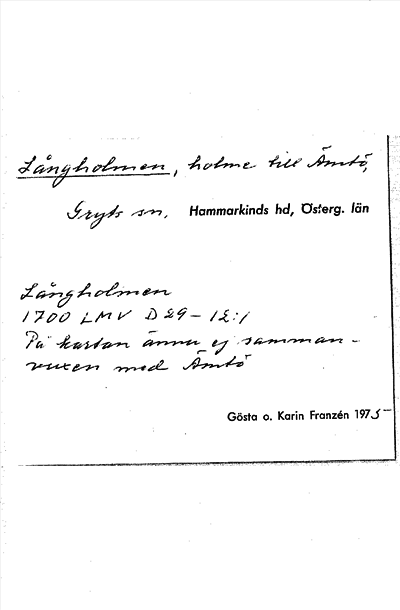 Långholmen, holme till Ämtö,
Gryts sn, Hammarkinds hd, Österg. län
Långholmen
1700 LMV D29-12:1
På kartan ännu ej samman-
vuxen med Ämtö
Gösta o. Karin Franzén 1975